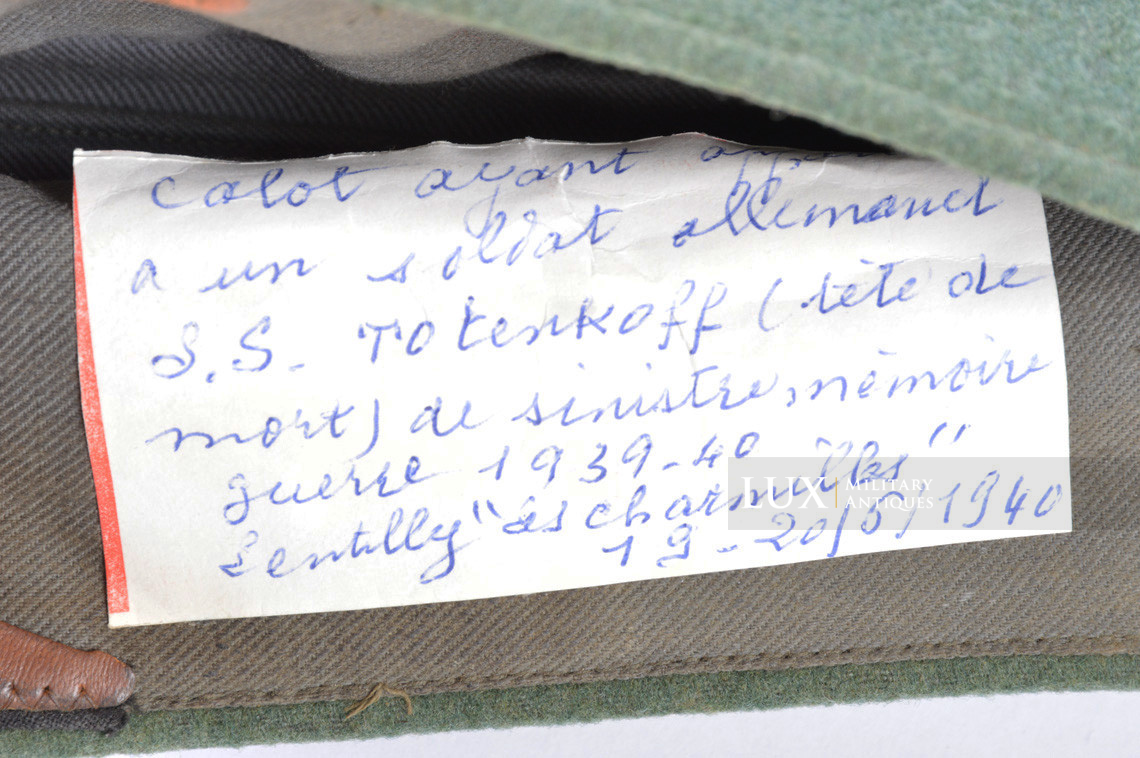 calot ayant
a un soldat allemand
S.S. Totenkoff (tête de
mort) de sinistre mémoire
guerre 1939-40
Lentilly "les charmilles"
19-20/6/1940
LUX MILITARY ANTIQUES